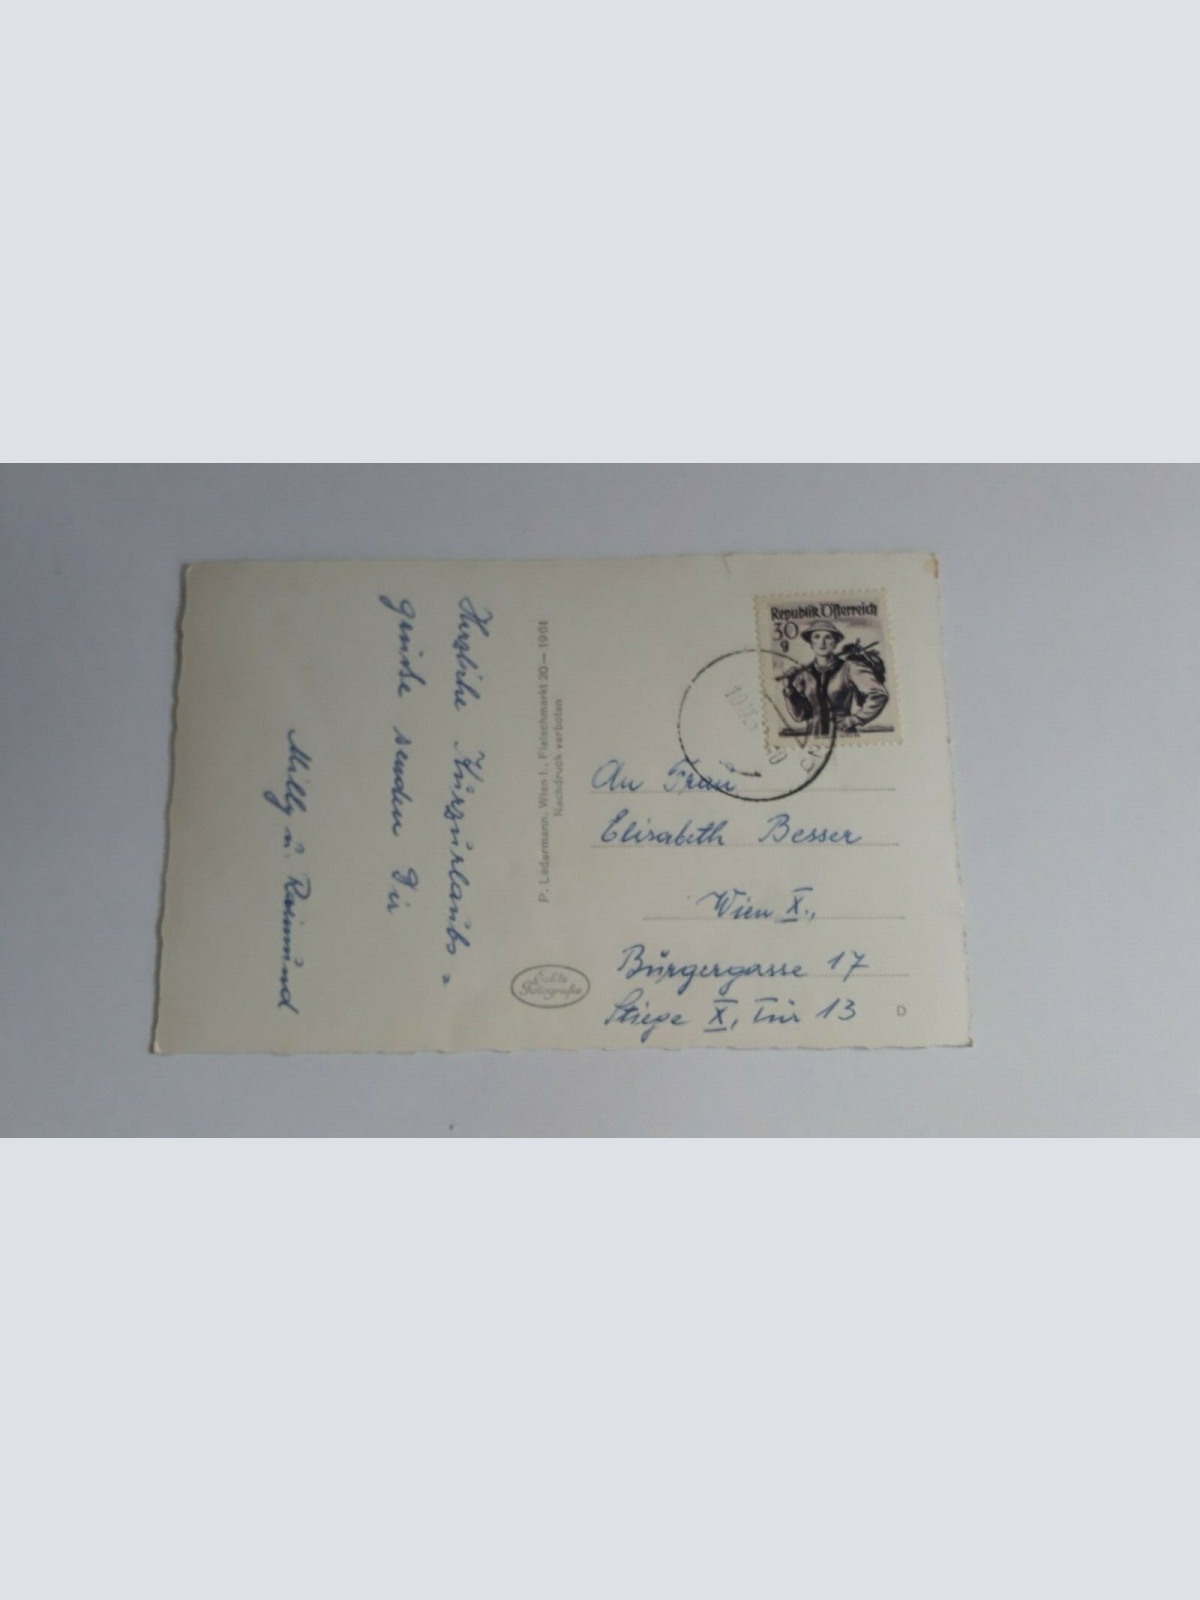 Herzliche Kurzurlaubs-
grüße senden Dir
Milly u. Raimund
P. Ledermann, Wien I., Fleischmarkt 20 — 1961
Nachdruck verboten
Echte
Fotografie
Republik Österreich
30
g
An Frau
Elisabeth Besser
Wien X.,
Bürgergasse 17
Stiege X, Tür 13
D